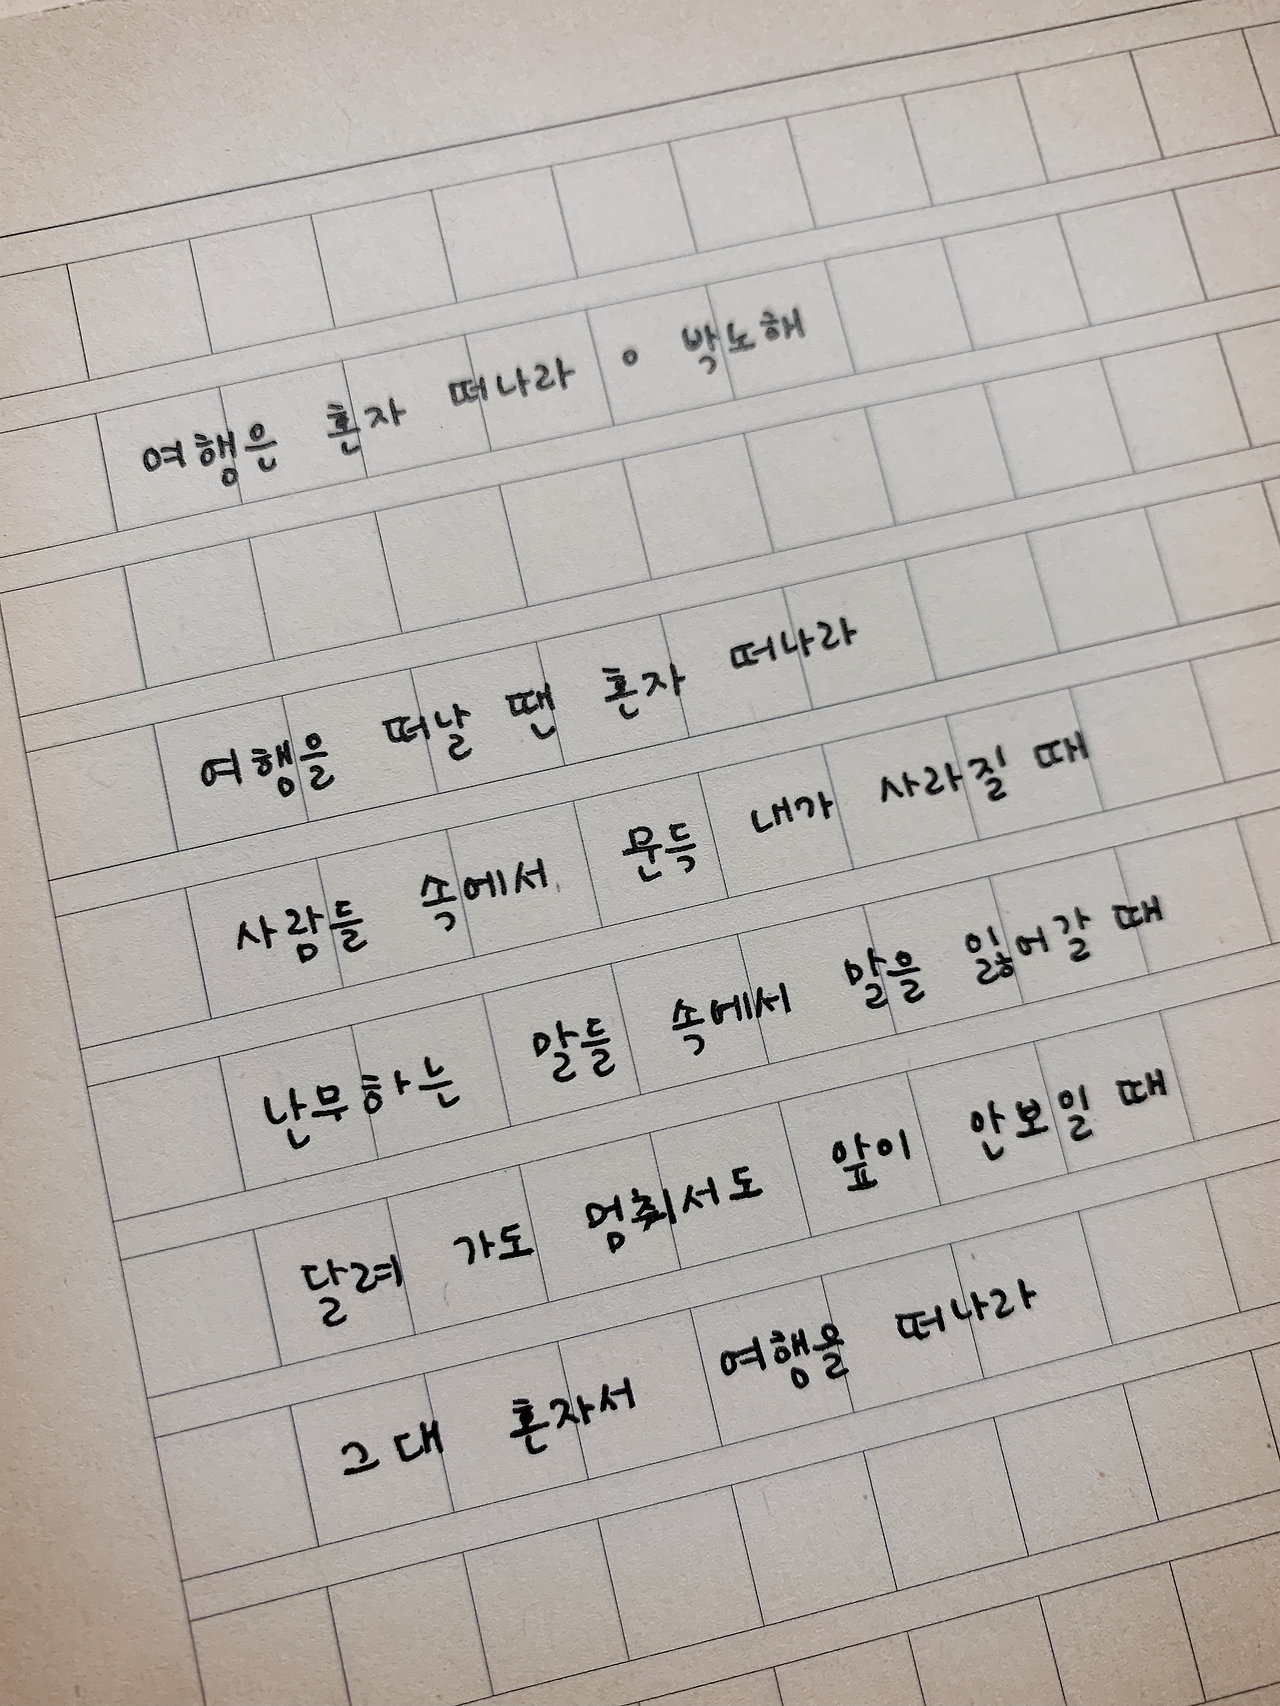 여행은 혼자 떠나라 ㅇ 박노해
여행을 떠날 땐 혼자 떠나라
사람들 속에서 문득 내가 사라질 때
난무하는 말들 속에서 말을 잃어갈 때
달려 가도 멈춰서도 앞이 안보일 때
그대 혼자서 여행을 떠나라